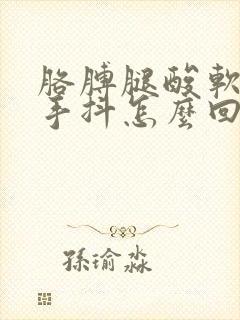 胳膊腿酸軟
手抖怎麽回
孫瑜淼